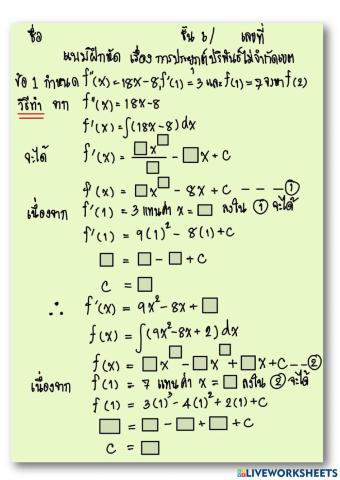 ชื่อ ชั้น 6/ เลขที่
แบบฝึกหัด เรื่อง การประยุกต์ปริพันธ์ไม่จำกัดเขต
ข้อ 1 กำหนด f"(x) = 18x-8, f'(1) = 3 และ f(1) = 7 จงหา f(2)
วิธีทำ จาก f"(x) = 18x-8
f'(x) = ∫(18x-8)dx
จะได้ f'(x) = □x^□/□ - □x + C
f'(x) = □x^□ - 8x + C - - - ①
เนื่องจาก f'(1) = 3 แทนค่า x = □ ลงใน ① จะได้
f'(1) = 9(1)² - 8(1) + C
□ = □ - □ + C
C = □
∴ f'(x) = 9x² - 8x + □
f(x) = ∫(9x² - 8x + 2)dx
f(x) = □x^□ - □x^□ + □x + C - - ②
เนื่องจาก f(1) = 7 แทนค่า x = □ ลงใน ② จะได้
f(1) = 3(1)³ - 4(1)² + 2(1) + C
□ = □ - □ + □ + C
C = □
LIVEWORKSHEETS